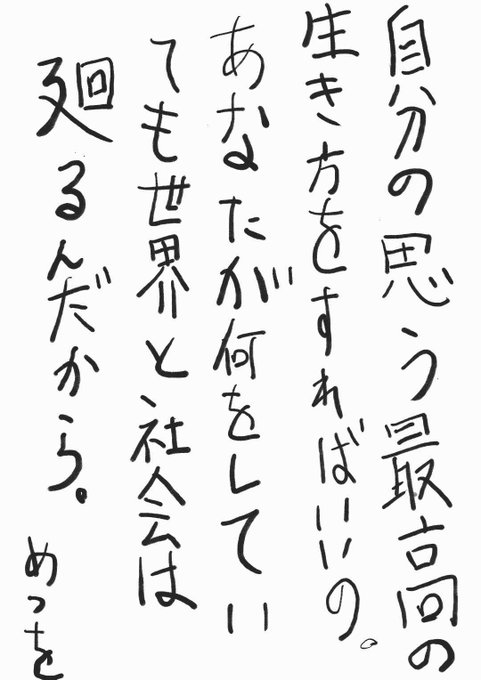 自分の思う最高の
生き方をすればいいの。
あなたが何をしてい
ても世界と社会は
廻るんだから。
めっを